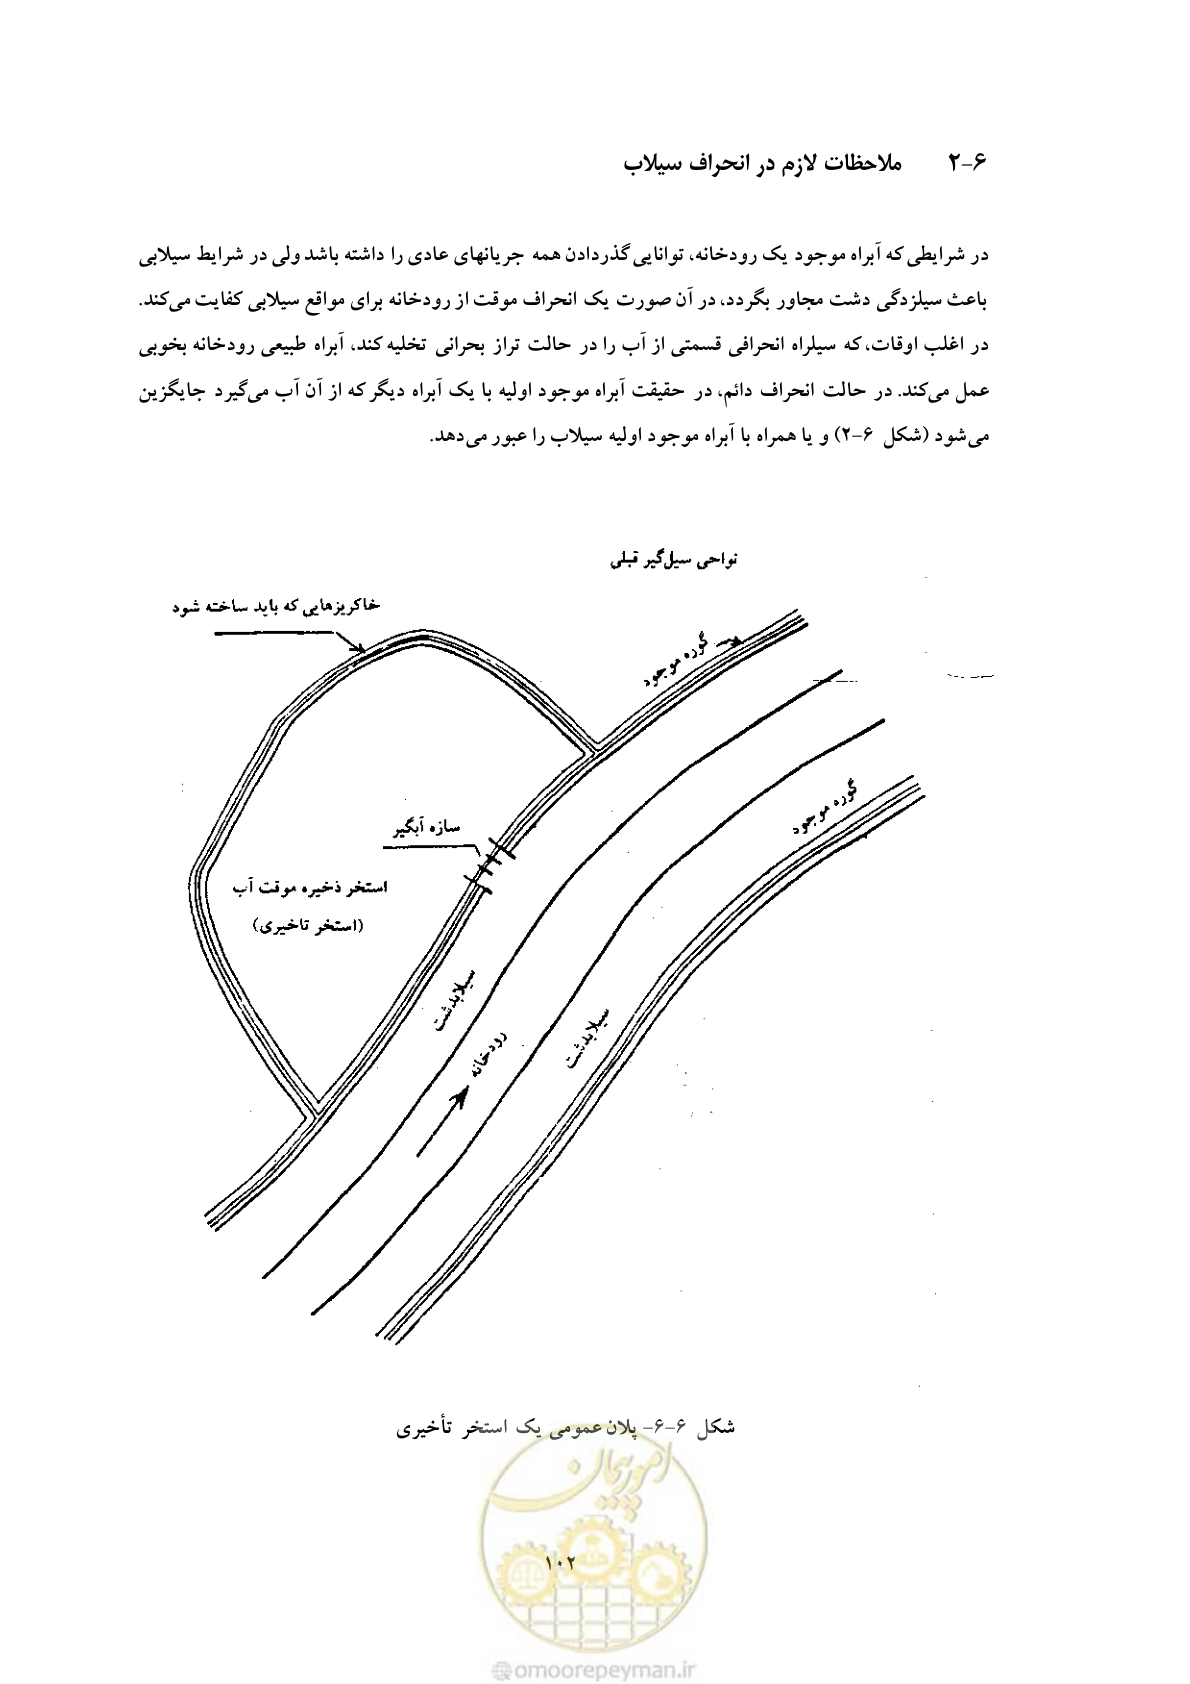 ۶-۲ ملاحظات لازم در انحراف سیلاب
در شرایطی که آبراه موجود یک رودخانه، توانایی گذردادن همه جریانهای عادی را داشته باشد ولی در شرایط سیلابی
باعث سیلزدگی دشت مجاور بگردد، در آن صورت یک انحراف موقت از رودخانه برای مواقع سیلابی کفایت می‌کند.
در اغلب اوقات، که سیلراه انحرافی قسمتی از آب را در حالت تراز بحرانی تخلیه کند، آبراه طبیعی رودخانه بخوبی
عمل می‌کند. در حالت انحراف دائم، در حقیقت آبراه موجود اولیه با یک آبراه دیگر که از آن آب می‌گیرد جایگزین
می‌شود (شکل ۶-۲) و یا همراه با آبراه موجود اولیه سیلاب را عبور می‌دهد.
نواحی سیل‌گیر قبلی
خاکریزهایی که باید ساخته شود
گوره موجود
گوره موجود
سازه آبگیر
استخر ذخیره موقت آب
(استخر تاخیری)
سیلابدشت
سیلابدشت
رودخانه
شکل ۶-۶- پلان عمومی یک استخر تأخیری
امور پیمان
۱۰۲
@omoorepeyman.ir